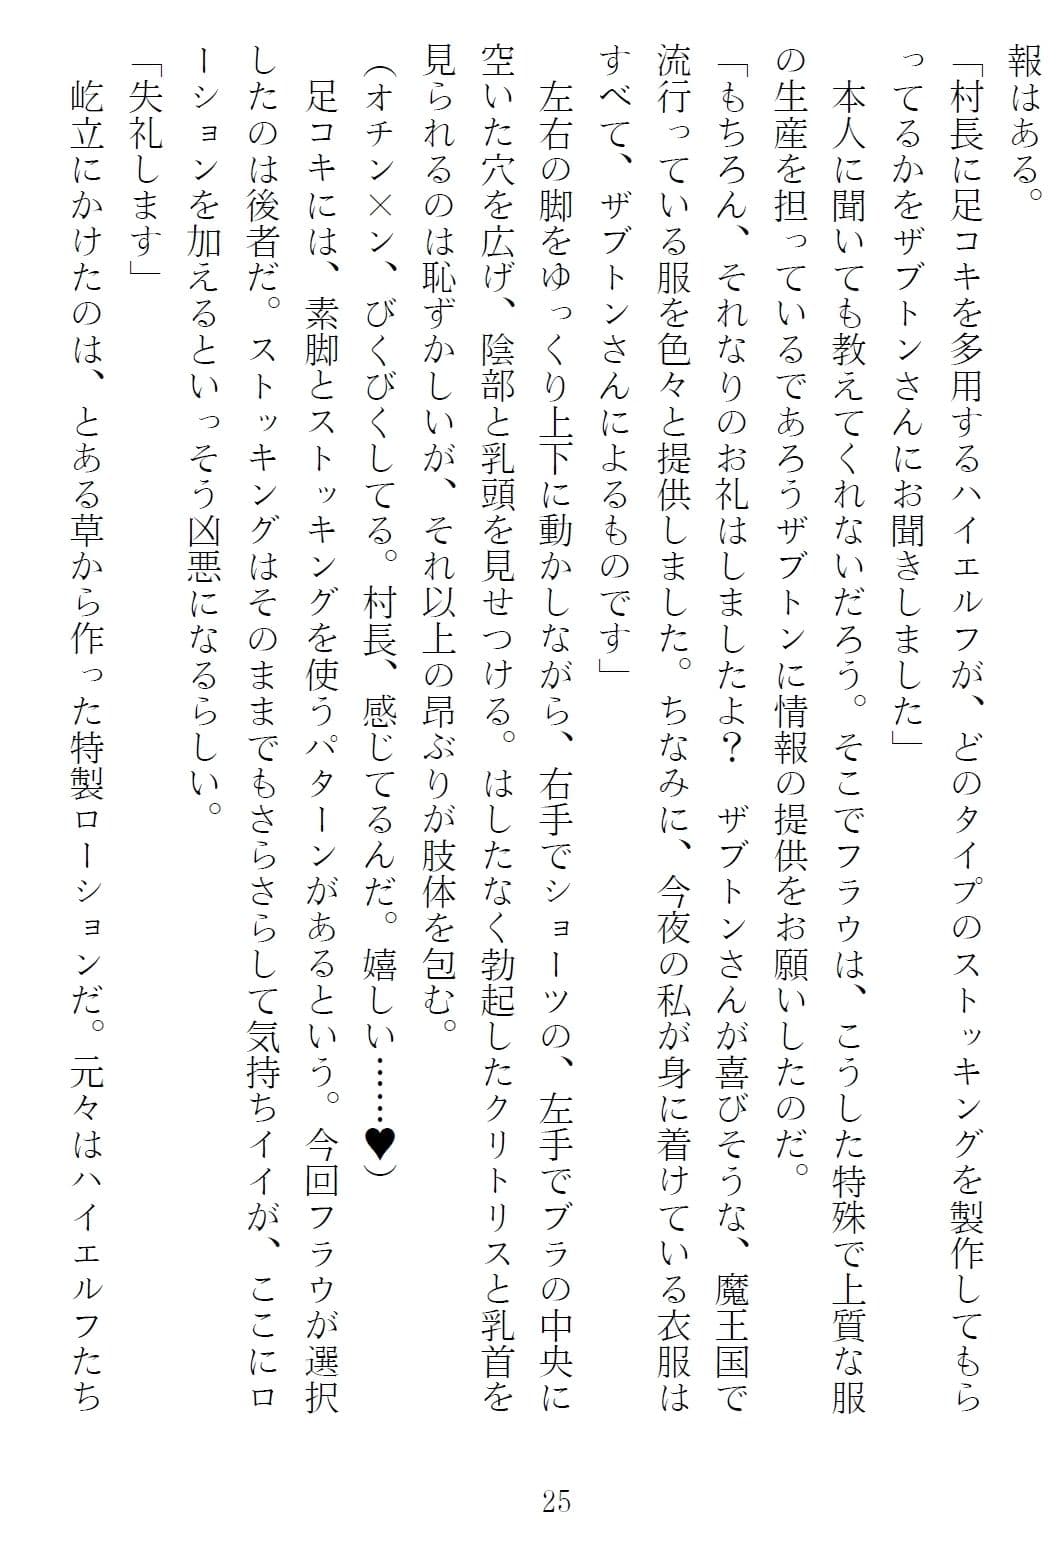 報はある。
「村長に足コキを多用するハイエルフが、どのタイプのストッキングを製作してもら
ってるかをザブトンさんにお聞きしました」
　本人に聞いても教えてくれないだろう。そこでフラウは、こうした特殊で上質な服
の生産を担っているであろうザブトンに情報の提供をお願いしたのだ。
「もちろん、それなりのお礼はしましたよ？　ザブトンさんが喜びそうな、魔王国で
流行っている服を色々と提供しました。ちなみに、今夜の私が身に着けている衣服は
すべて、ザブトンさんによるものです」
　左右の脚をゆっくり上下に動かしながら、右手でショーツの、左手でブラの中央に
空いた穴を広げ、陰部と乳頭を見せつける。はしたなく勃起したクリトリスと乳首を
見られるのは恥ずかしいが、それ以上の昂ぶりが肢体を包む。
（オチン×ン、びくびくしてる。村長、感じてるんだ。嬉しい……♥）
　足コキには、素脚とストッキングを使うパターンがあるという。今回フラウが選択
したのは後者だ。ストッキングはそのままでもさらさらして気持ちイイが、ここにロ
ーションを加えるといっそう凶悪になるらしい。
「失礼します」
　屹立にかけたのは、とある草から作った特製ローションだ。元々はハイエルフたち
25